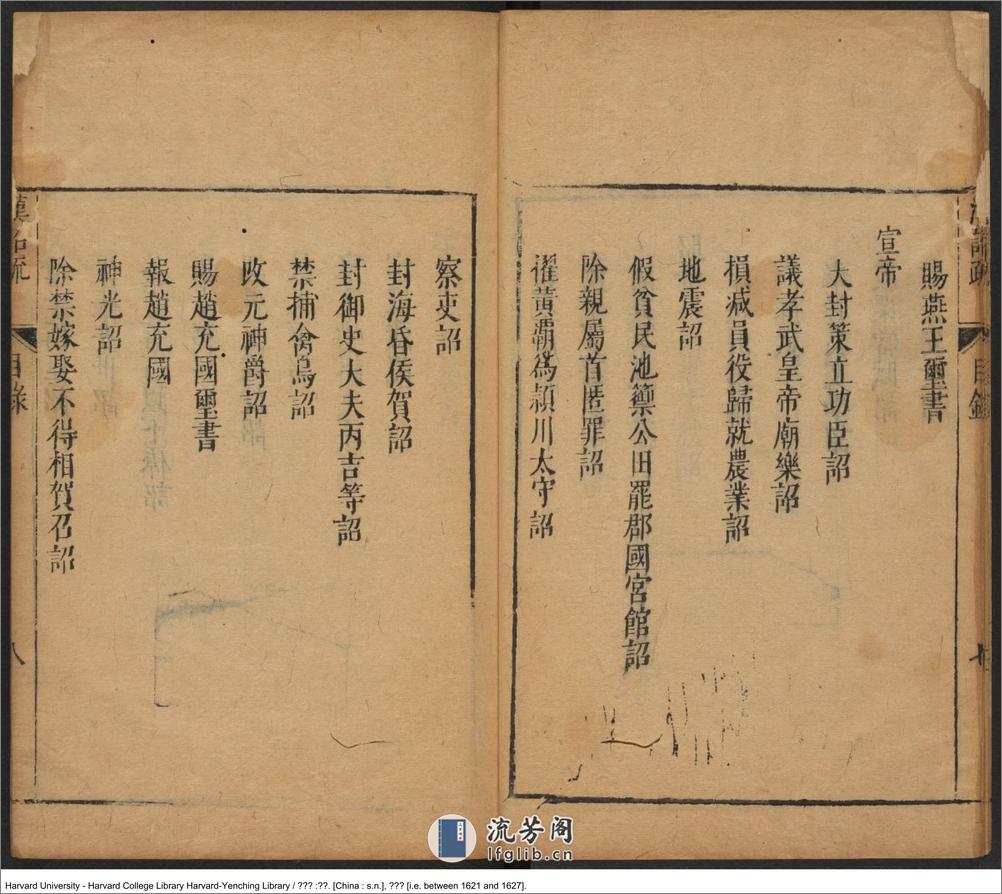 賜燕王璽書
宣帝
大封策立功臣詔
議孝武皇帝廟樂詔
損减員役歸就農業詔
地震詔
假貧民池籞公田罷郡國宮館詔
除親屬首匿罪詔
擢黃霸爲潁川太守詔
察吏詔
封海昏侯賀詔
封御史大夫丙吉等詔
禁捕禽鳥詔
改元神爵詔
賜趙充國璽書
報趙充國
神光詔
除禁嫁娶不得相賀召詔
漢詔疏
目錄
八
流芳阁
lfglib.cn
Harvard University - Harvard College Library Harvard-Yenching Library / ??? :??. [China : s.n.], ??? [i.e. between 1621 and 1627].